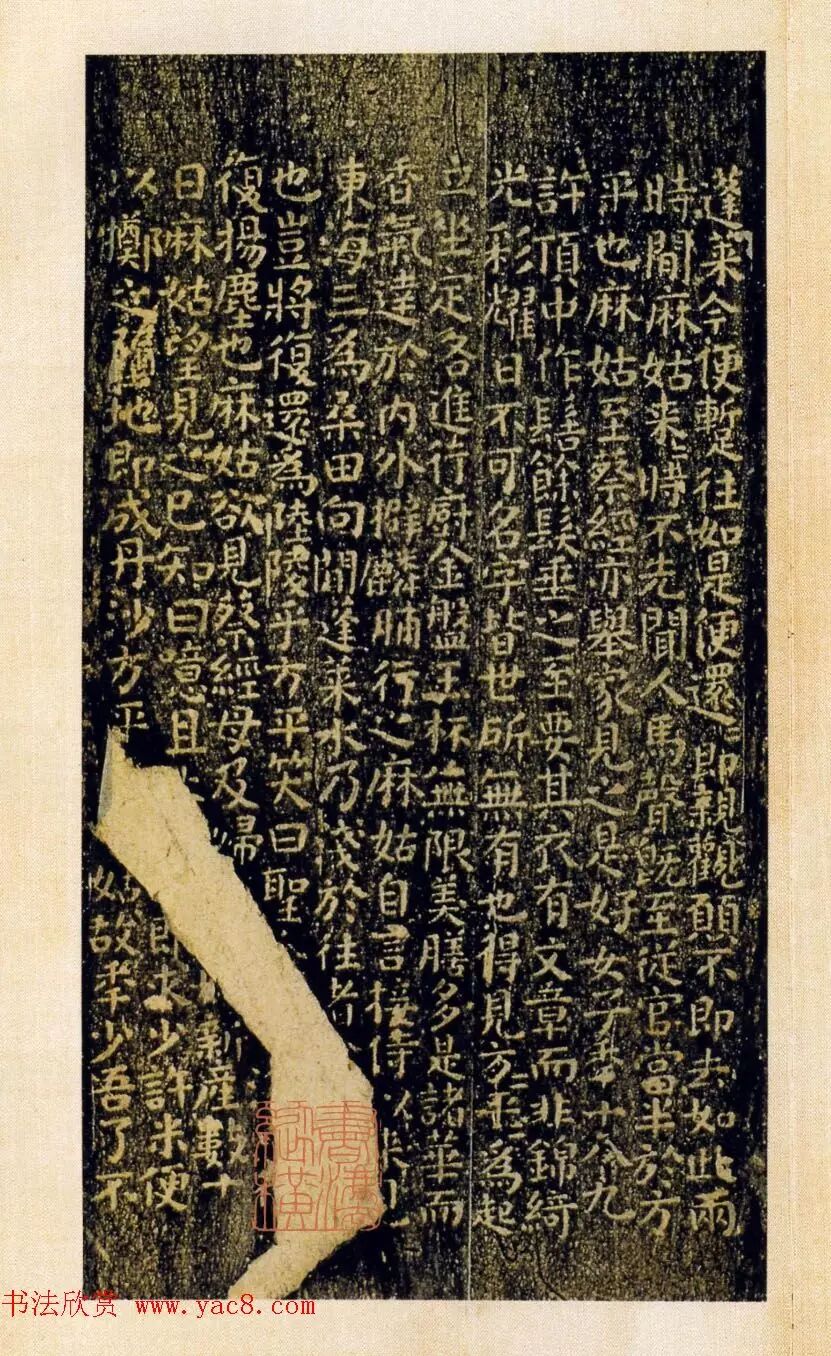 蓬萊今便蹔往如是便還還即親覲願不即去如此兩
時間麻姑来来時不先聞人馬聲既至從官當半於方
平也麻姑至蔡經亦舉家見之是好女子年十八九
許頂中作髻餘髮垂之至要其衣有文章而非錦綺
光彩耀日不可名字皆世所無有也得見方平方平為起
立坐定各進行廚金盤玉杯無限美膳多是諸華而
香氣達於內外擗麟脯行之麻姑自言接侍以来
東海三為桑田向間蓬萊水乃淺於往者
也豈將復還為陸陵乎方平笑曰聖
復揚塵也麻姑欲見蔡經母及婦 新產數十
日麻姑望見之已知曰噫且 即求少許米便
以擲之墮地即成丹沙方平 姑故年少吾了不
書法欣赏 www.yac8.com